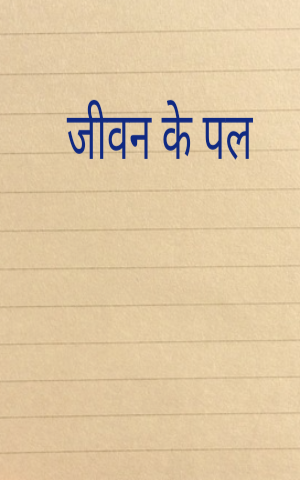 जीवन के पल